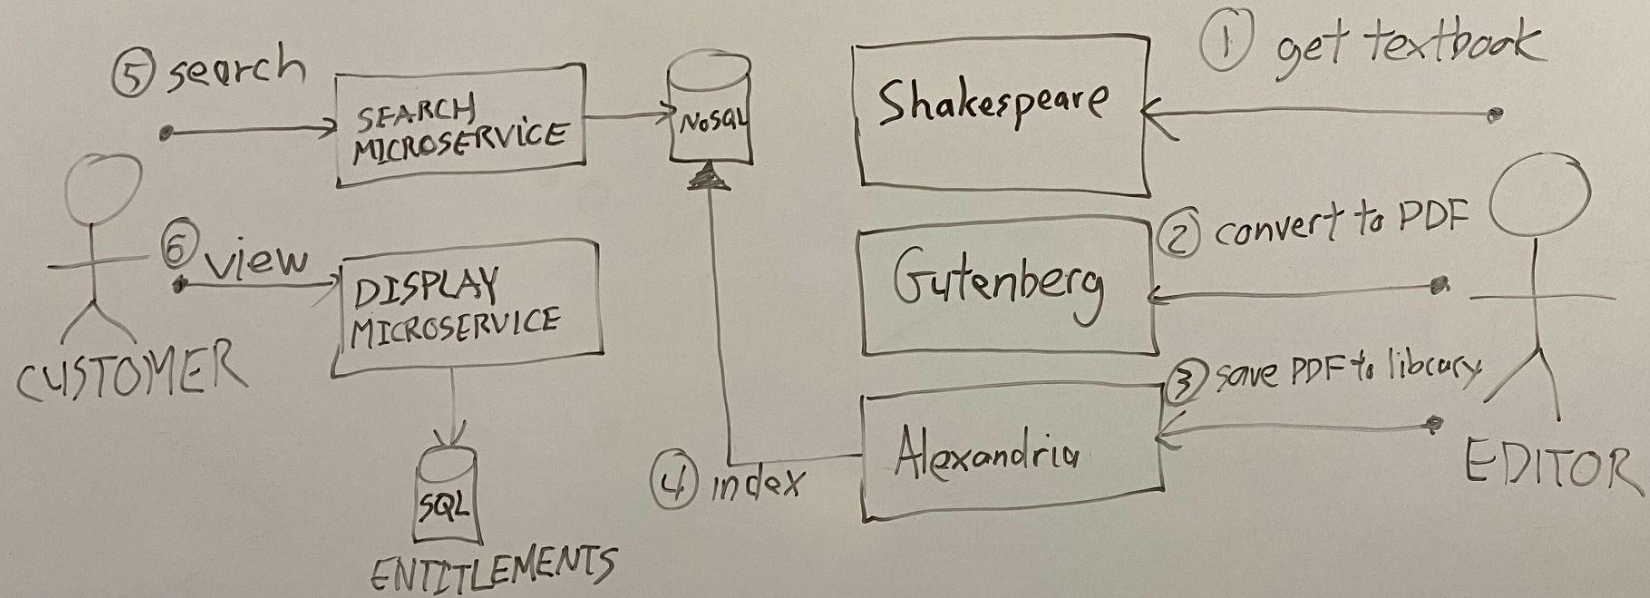 ⑤ search
SEARCH
MICROSERVICE
NoSQL
Shakespeare
① get textbook
② convert to PDF
⑥ view
DISPLAY
MICROSERVICE
Gutenberg
CUSTOMER
③ save PDF to library
Alexandria
④ index
EDITOR
SQL
ENTITLEMENTS